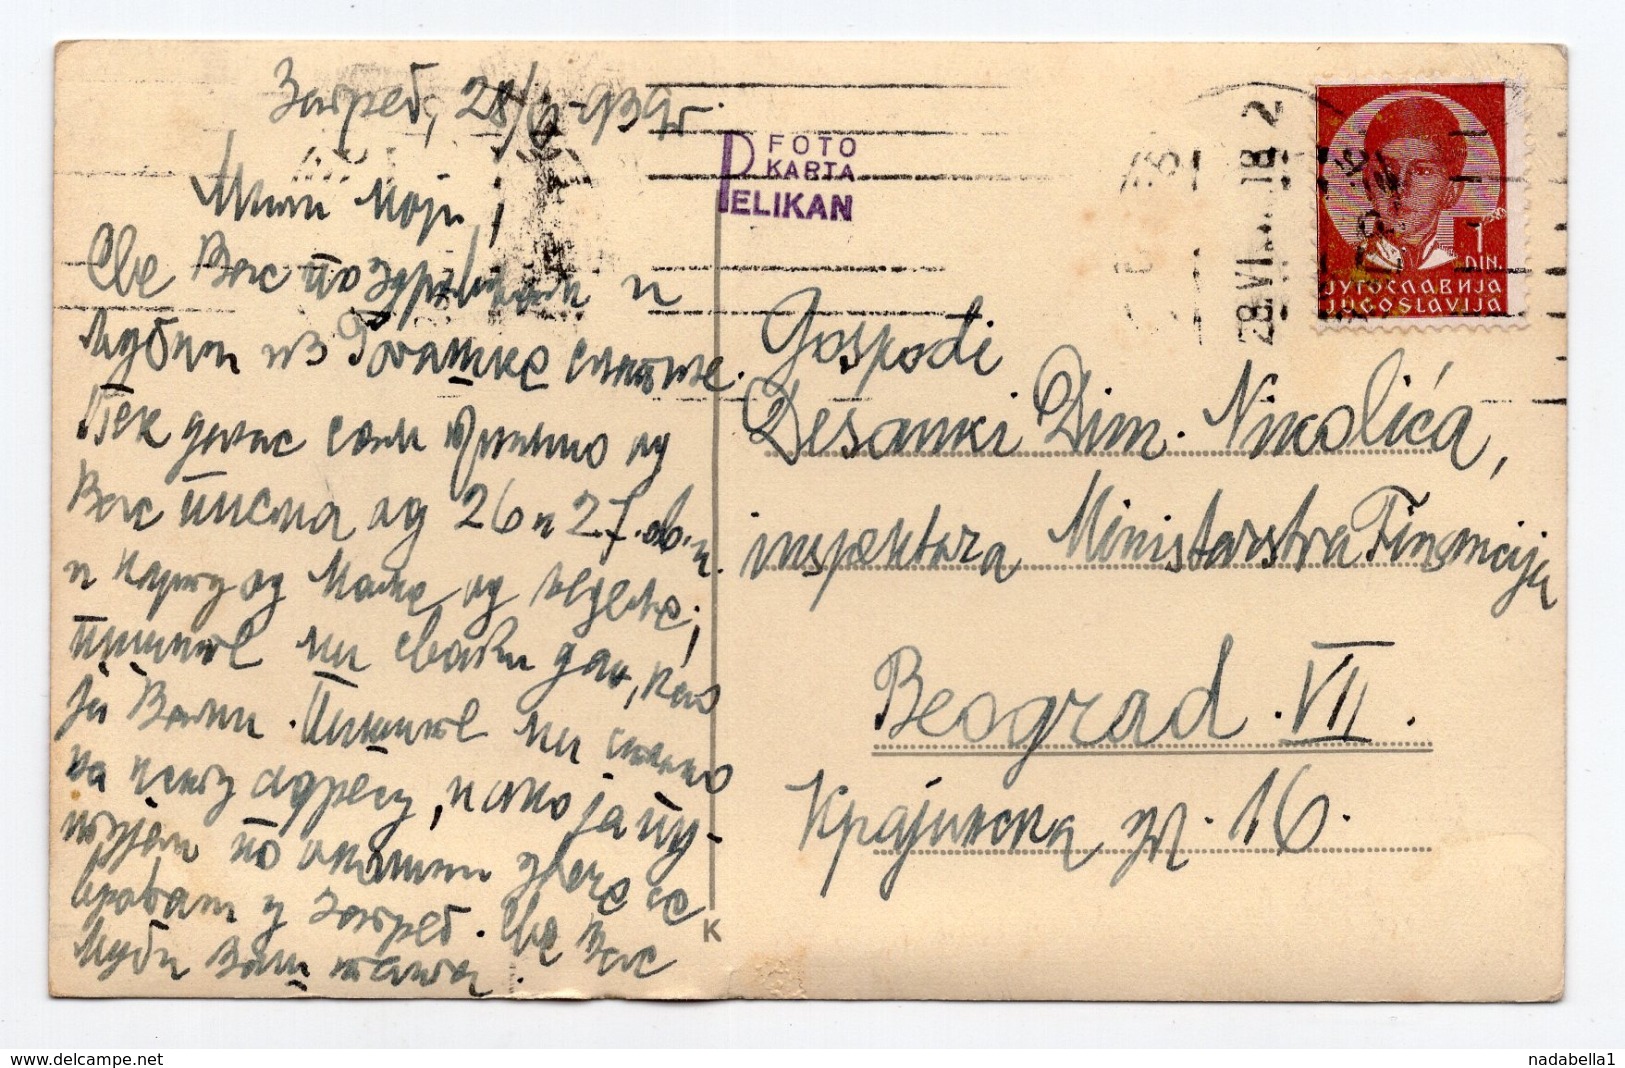 Загреб, 28/6-939г
Мили Моји!
Све Вас поздрављам и
љубим из Рогашке Слатине.
Тек данас сам примио од
Вас писма од 26 и 27. ов. м.
и карту од Маме од недеље;
пишите ми сваки дан, као
ја Вама. Пишите ми стално
на исту адресу, иако ја пу-
тујем по околини јер се
враћам у Загреб. Све Вас
љуби Ваш тата.
FOTO
KARTA
PELIKAN
28.VI. 18
1
DIN.
ЈУГОСЛАВИЈА
JUGOSLAVIJA
Gospođi
Desanki Dim. Nikolića,
inspektora Ministarstva Financija
Beograd VII.
Крајинска ул. 16.
K
delcampe.net
nadabella1